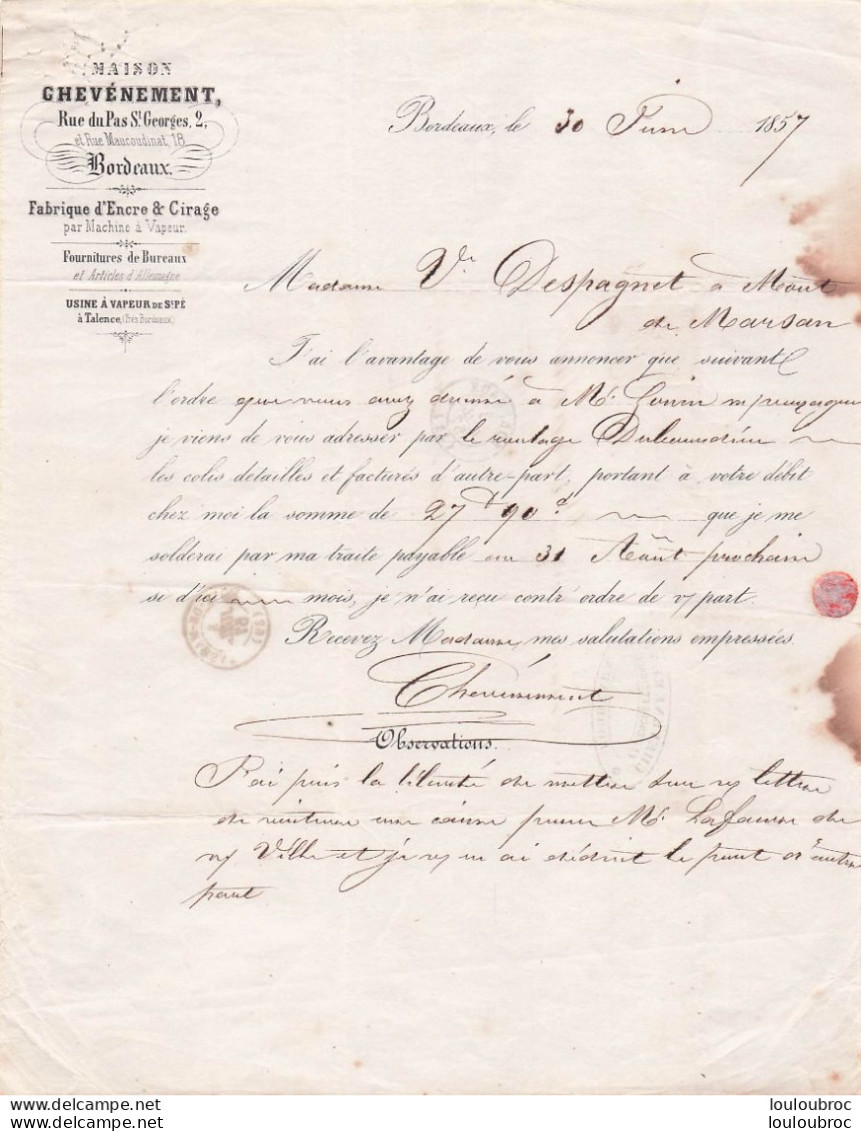 MAISON
CHEVÉNEMENT,
Rue du Pas St. Georges, 2,
et Rue Maucoudinat, 18
Bordeaux.
Fabrique d'Encre & Cirage
par Machine à Vapeur.
Fournitures de Bureaux
et Articles d'Allemagne
USINE À VAPEUR DE St. PÉ
à Talence, (Près Bordeaux)
Bordeaux, le 30 Juin 1857
Madame Ve Despagnet à Mont
de Marsan
J'ai l'avantage de vous annoncer que suivant
l'ordre que vous avez donné à Mr.
je viens de vous adresser par le roulage
les colis détaillés et facturés d'autre-part, portant à votre débit
chez moi la somme de 27 f 90 c que je me
solderai par ma traite payable au 31 Août prochain
si d'ici mois, je n'ai reçu contr'ordre de v/ part.
Recevez Madame, mes salutations empressées.
Chevénement
Observations.
J'ai pris la liberté de mettre sur v/ lettre
de voiture une caisse pour Mr. de
v/ Ville et je v/ en ai déduit le port d'autre
part
louloubroc
louloubroc